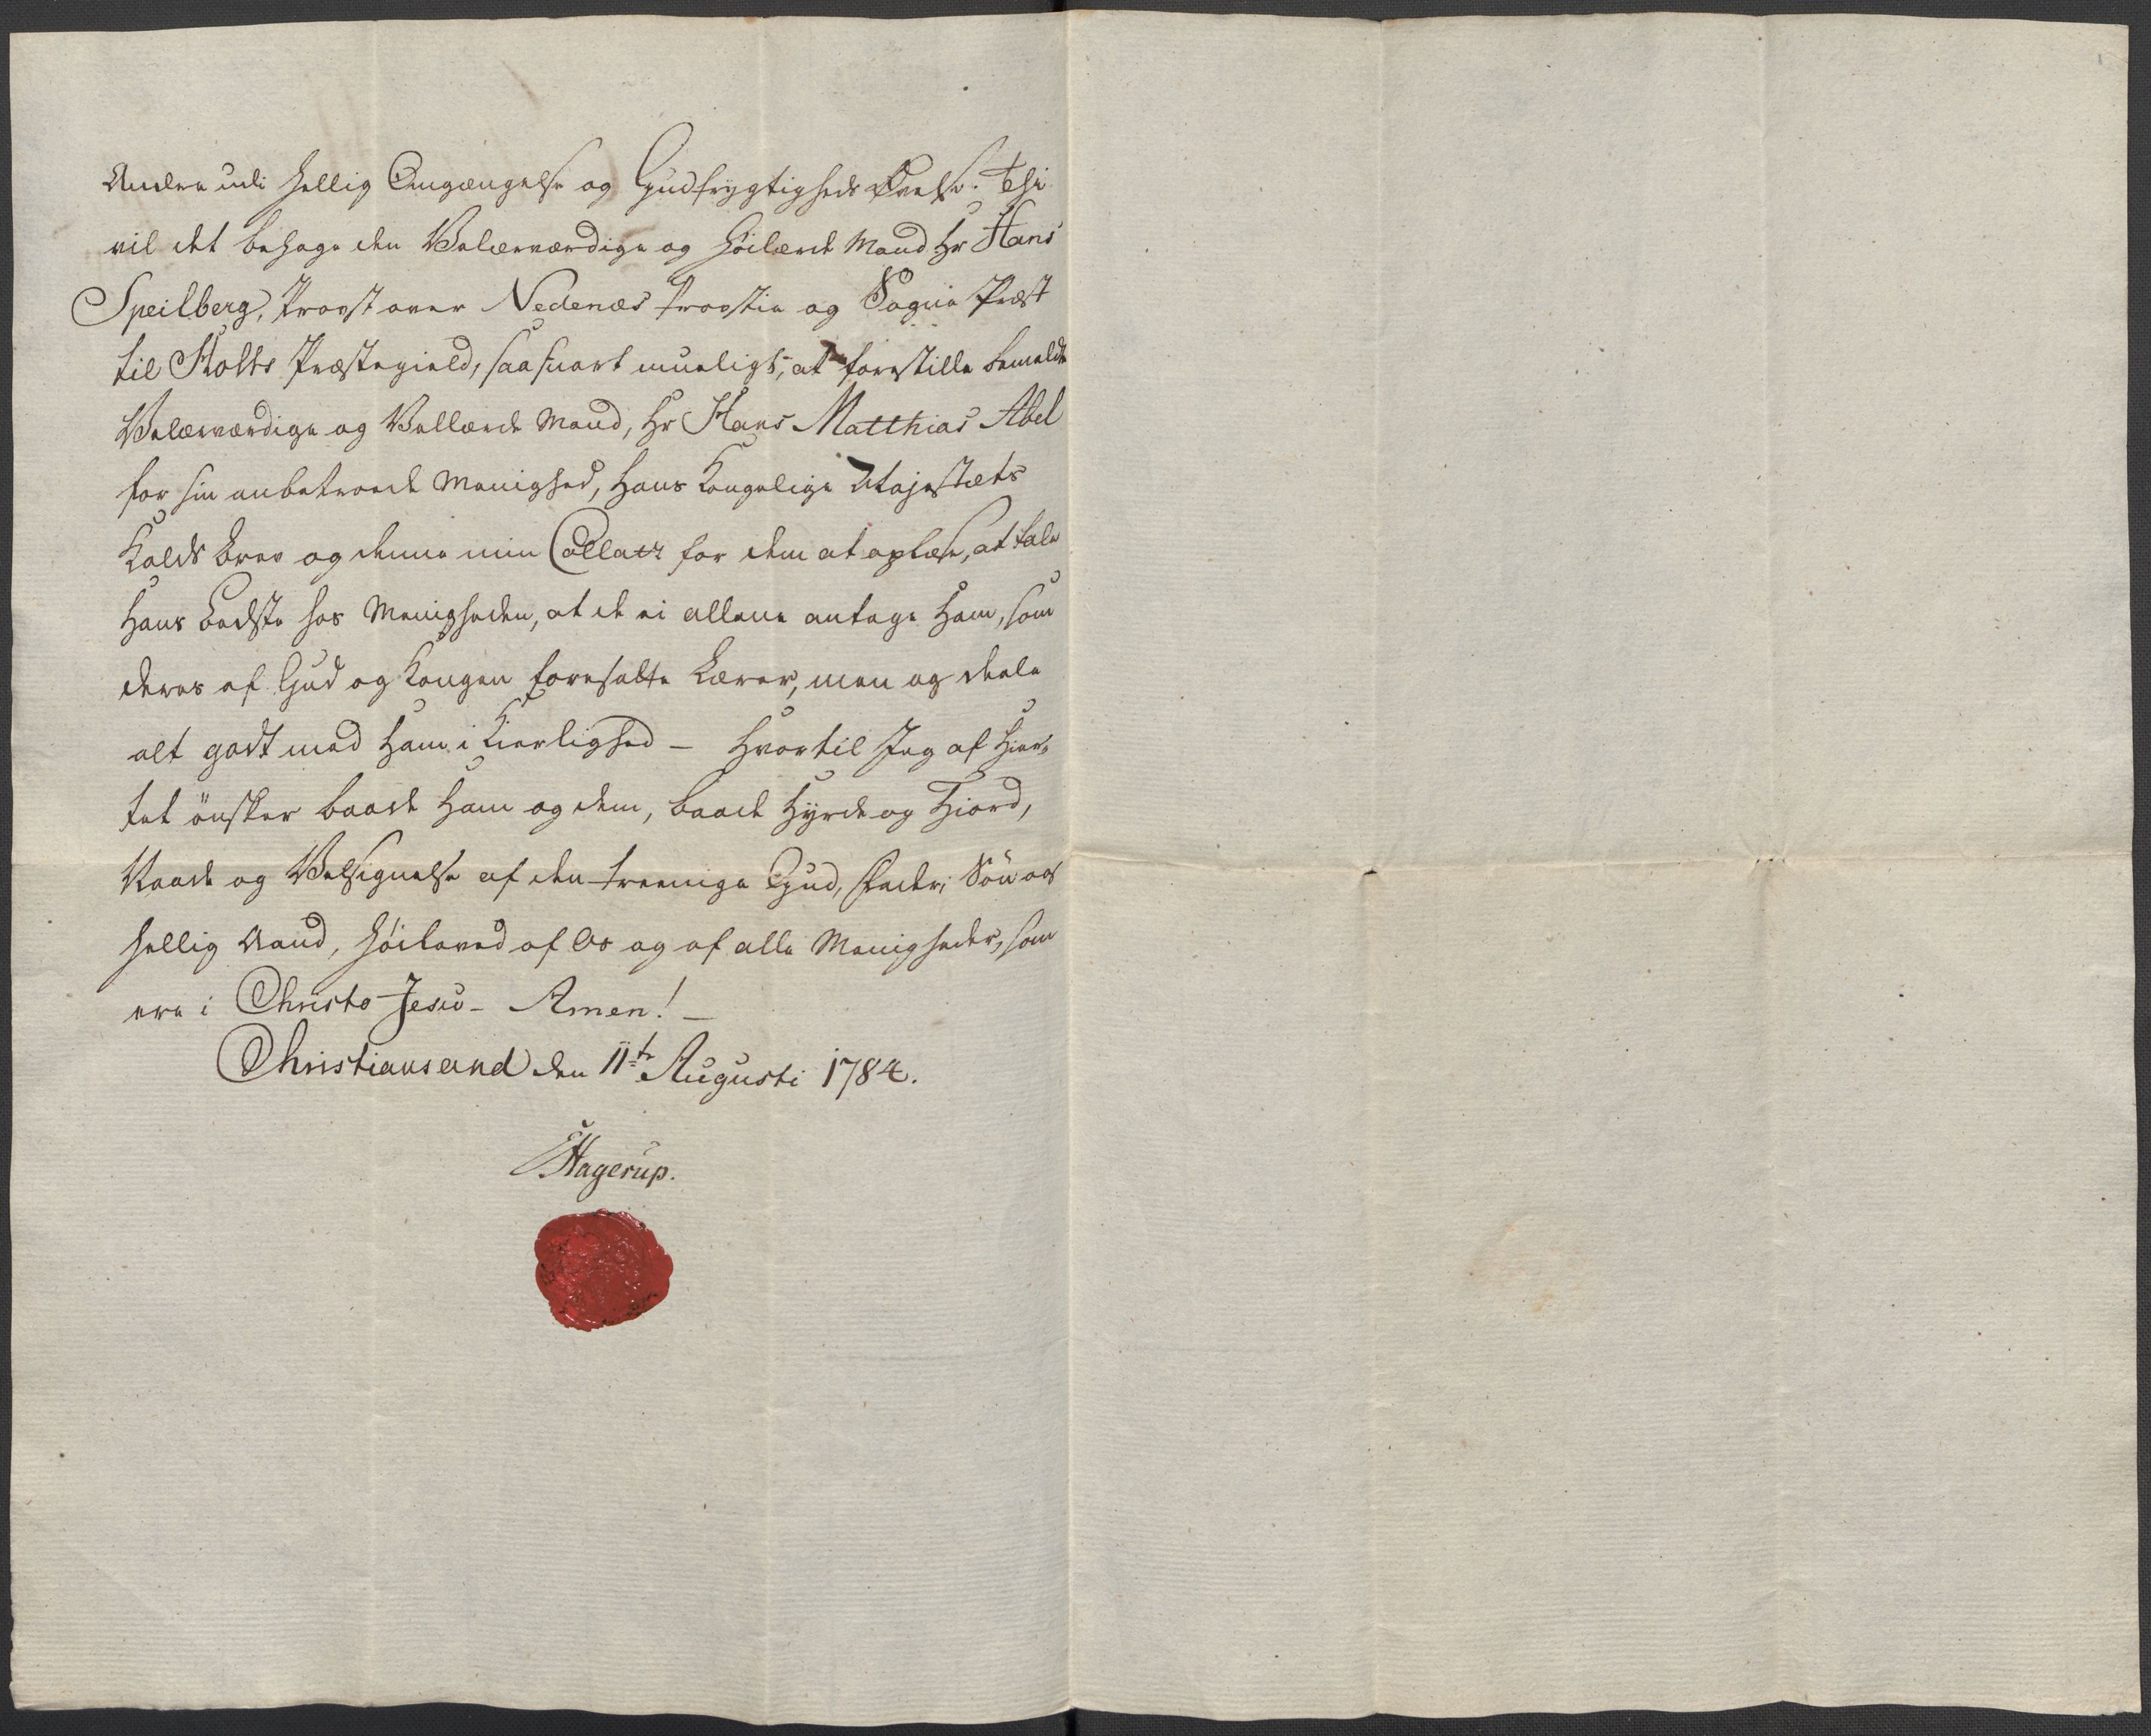 Andre udi hellig Omgængelse og Gudfrygtigheds Øvelse. Thi
vil det behage den Velærværdige og Høilærde Mand Hr Hans
Speilberg, Provst over Nedenæs Provstie og Sogne Præst
til Holts Præstegield, saa snart mueligt, at forestille bemeldte
Velærværdige og Vellærde Mand, Hr Hans Matthias Abel
for sin anbetroede Menighed, Hans Kongelige Majestæts
Kalds Brev og denne min Collatz for dem at oplæse, at tale
Hans Bedste hos Menigheden, at de ei allene antage Ham, som
deres af Gud og Kongen foresatte Lærer, men og deele
alt godt med Ham i Kierlighed – Hvortil Jeg af Hier-
tet ønsker baade Ham og dem, baade Hyrde og Hiord,
Naade og Velsignelse af den treenige Gud, Fader, Søn og
hellig Aand, høiloved af Os og af alle Menigheder, som
ere i Christo Jesu – Amen! –
Christiansand den 11te Augusti 1784.
Hagerup.